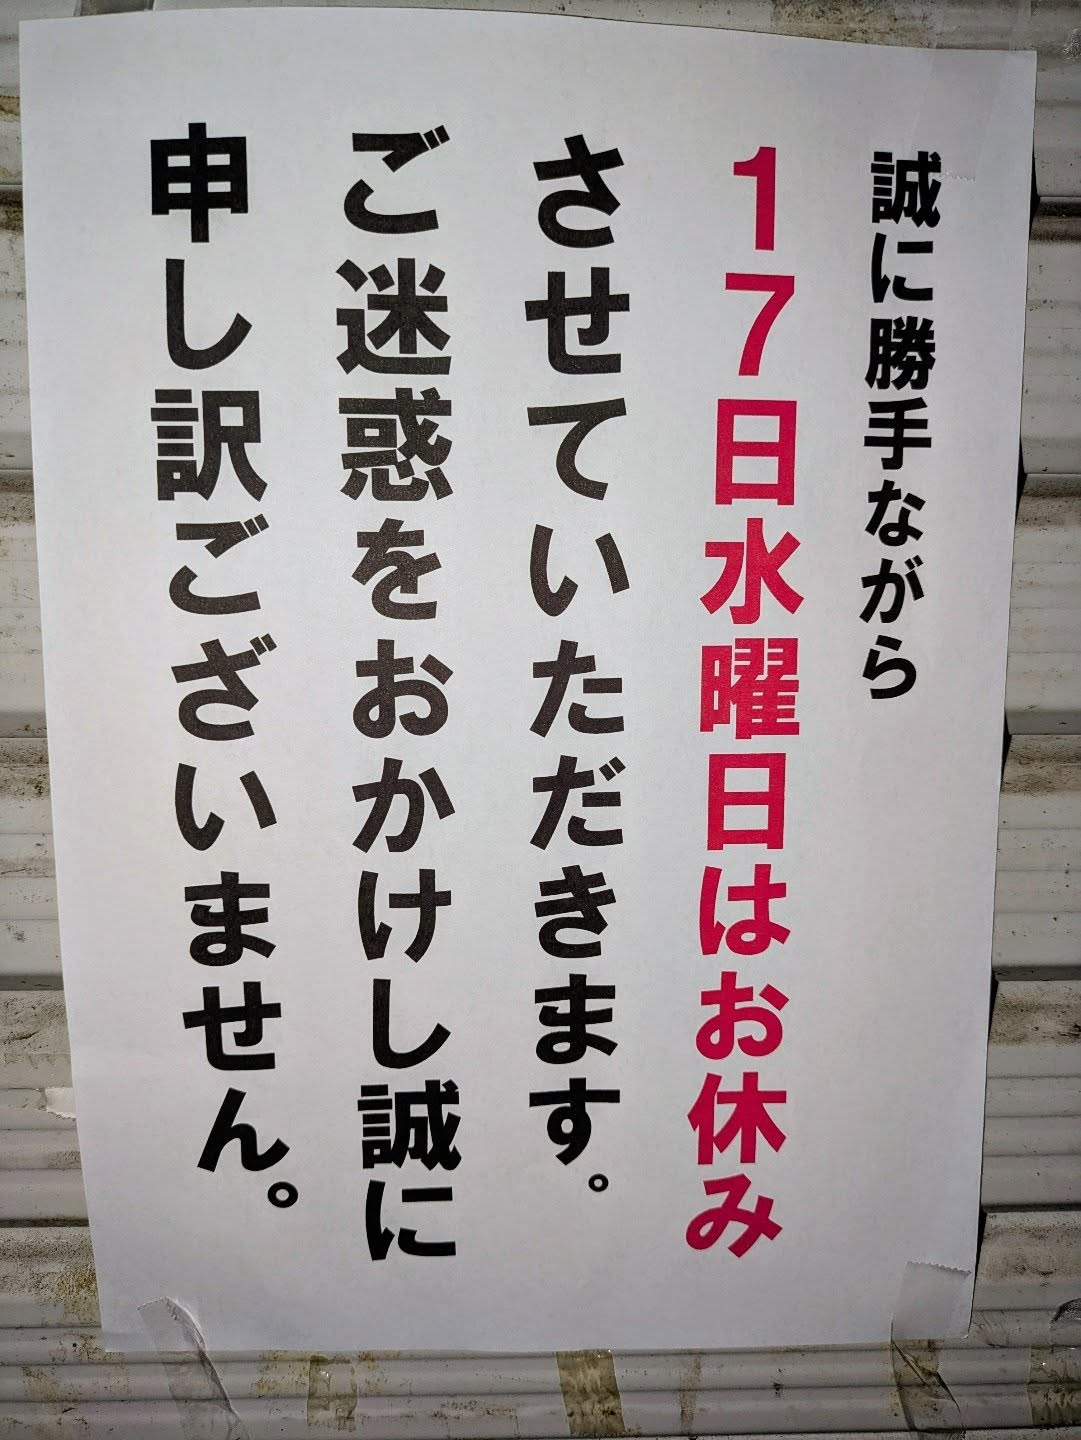 誠に勝手ながら
17日水曜日はお休み
させていただきます。
ご迷惑をおかけし誠に
申し訳ございません。